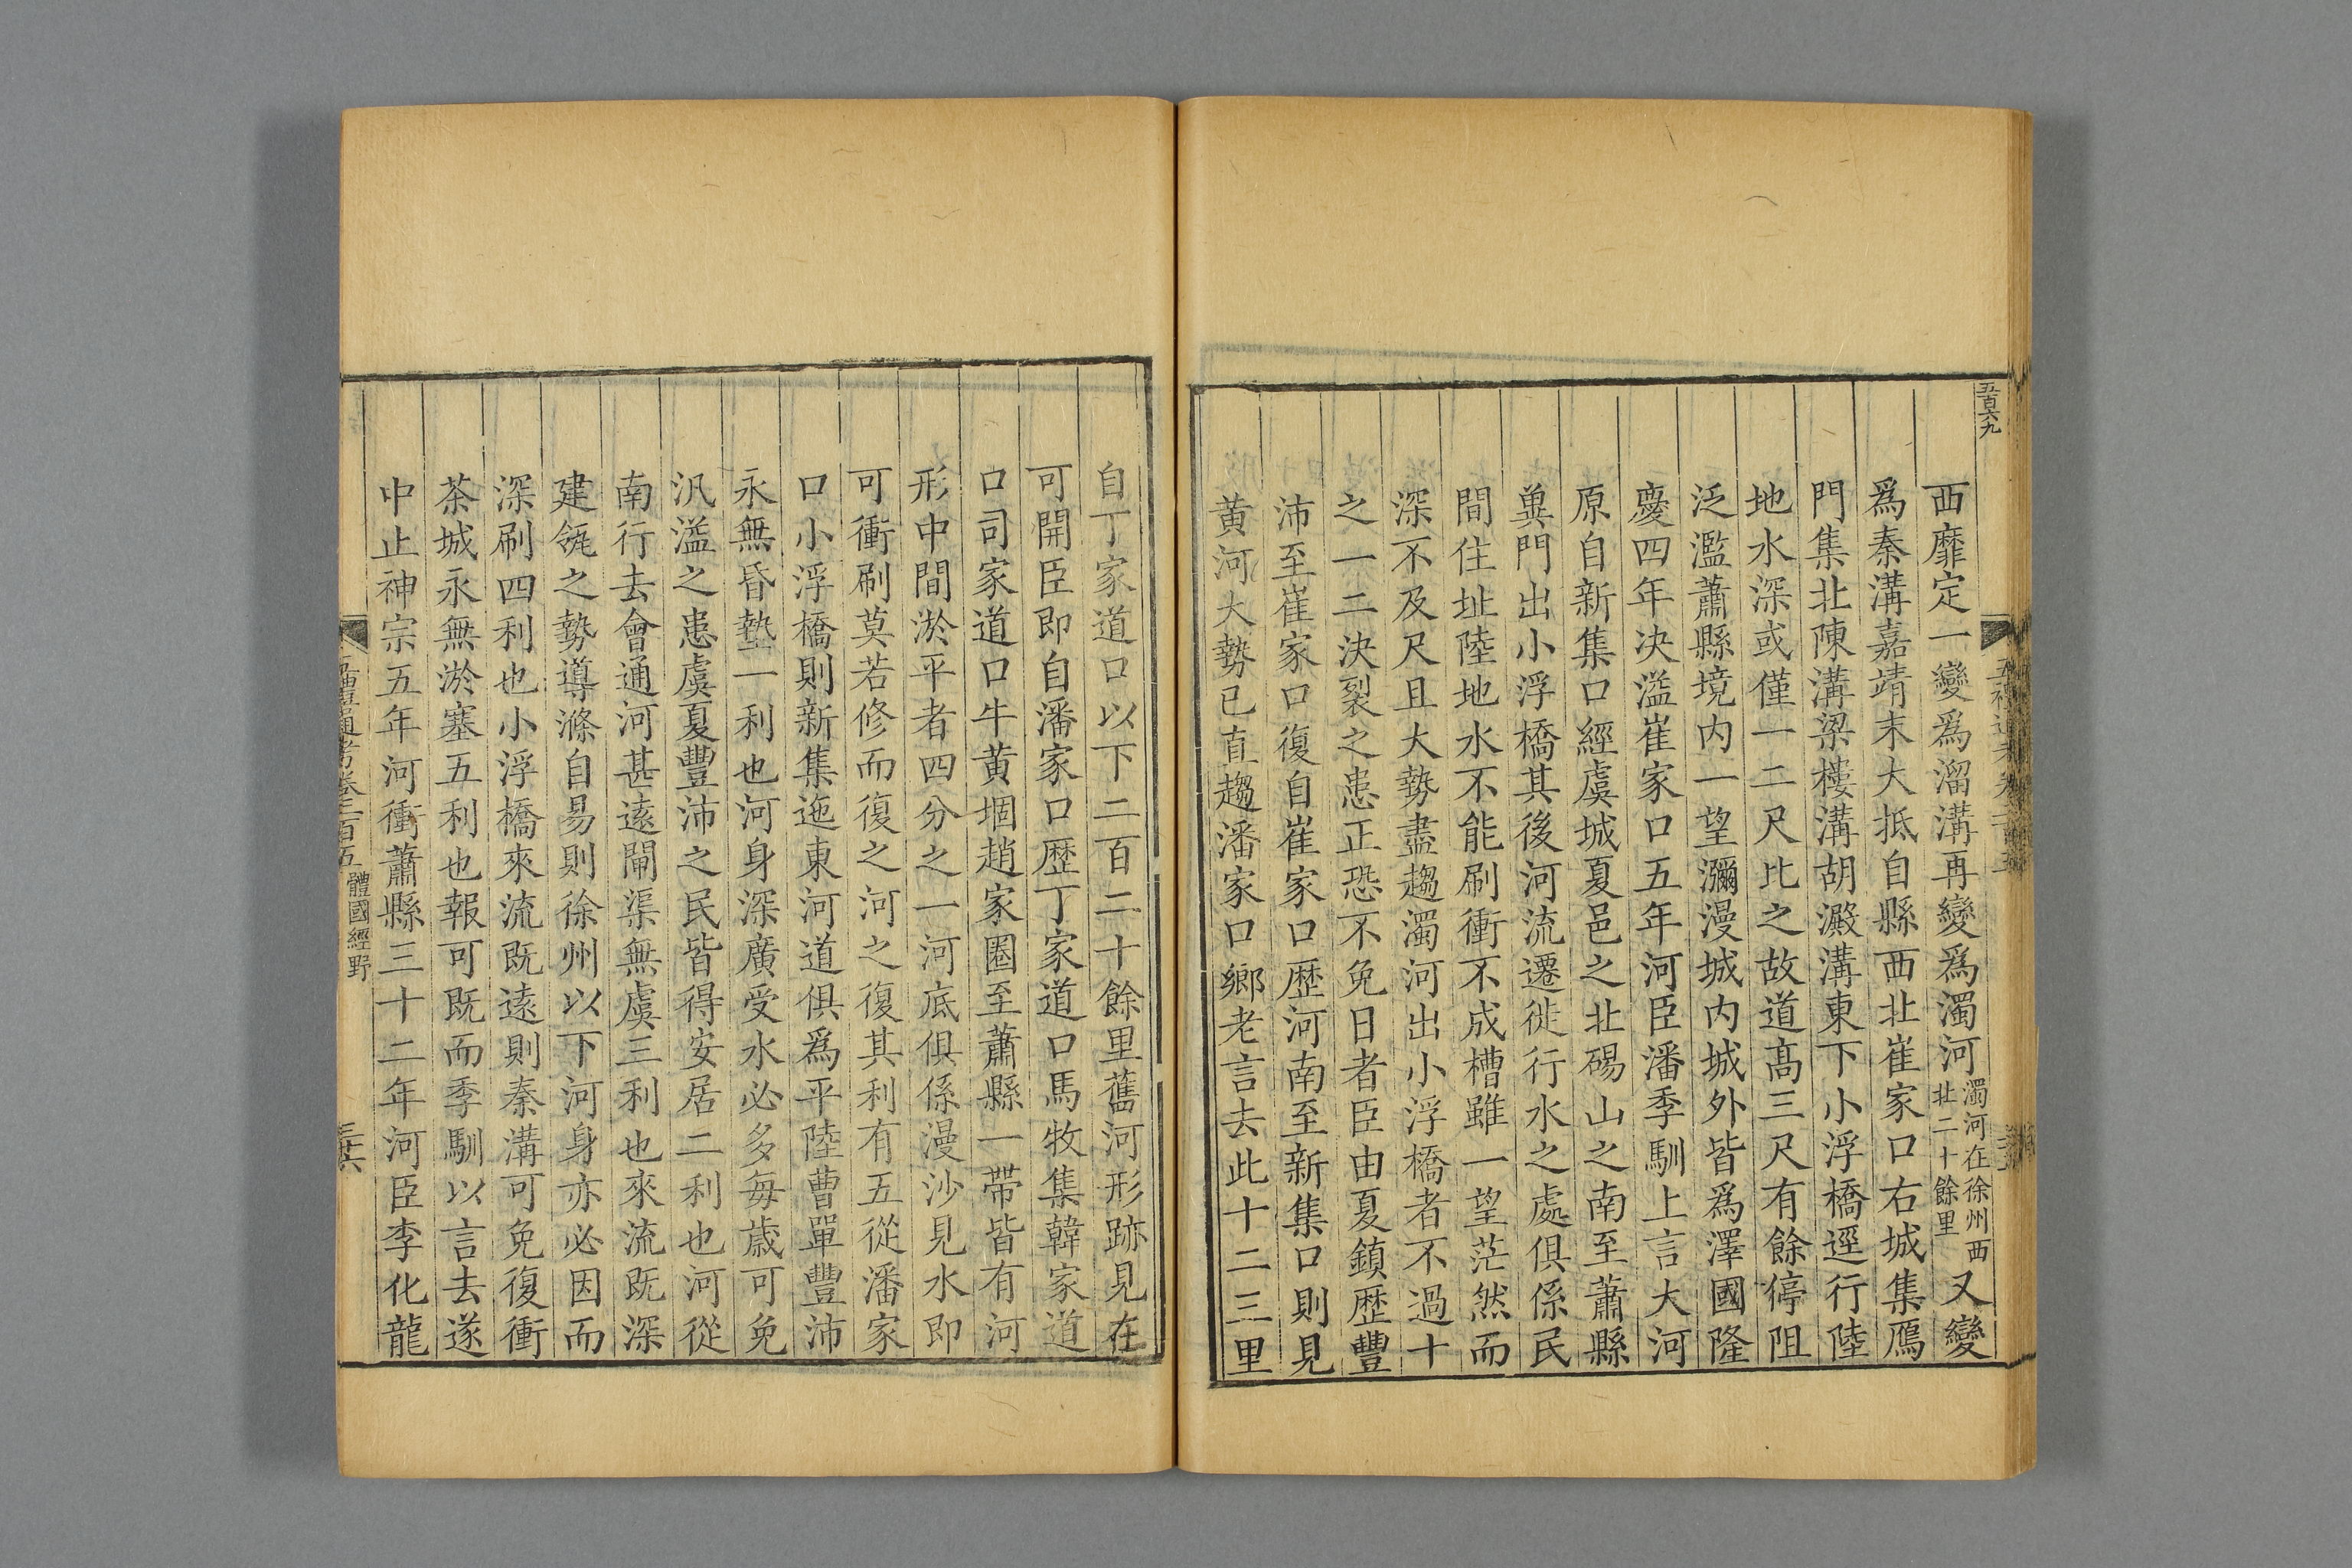 五百六九
西靡定一變爲溜溝再變爲濁河濁河在徐州西北二十餘里又變
爲秦溝嘉靖末大抵自縣西北崔家口右城集鴈
門集北陳溝梁樓溝胡澱溝東下小浮橋逕行陸
地水深或僅一二尺比之故道髙三尺有餘停阻
泛濫蕭縣境内一望瀰漫城内城外皆爲澤國隆
慶四年决溢崔家口五年河臣潘季馴上言大河
原自新集口經虞城夏邑之北碭山之南至蕭縣
薊門出小浮橋其後河流遷徙行水之處俱係民
間住址陸地水不能刷衝不成槽雖一望茫然而
深不及尺且大勢盡趨濁河出小浮橋者不過十
之一二決裂之患正恐不免日者臣由夏鎮歴豐
沛至崔家口復自崔家口歴河南至新集口則見
黄河大勢已直趨潘家口鄉老言去此十二三里
自丁家道口以下二百二十餘里舊河形跡見在
可開臣即自潘家口歴丁家道口馬牧集韓家道
口司家道口牛黄堌趙家圈至蕭縣一帶皆有河
形中間淤平者四分之一河底俱係漫沙見水即
可衝刷莫若修而復之河之復其利有五從潘家
口小浮橋則新集迤東河道俱爲平陸曹單豐沛
永無昏墊一利也河身深廣受水必多每歳可免
汎溢之患虞夏豐沛之民皆得安居二利也河從
南行去會通河甚遠閘渠無虞三利也來流既深
建瓴之勢導滌自易則徐州以下河身亦必因而
深刷四利也小浮橋來流既遠則秦溝可免復衝
茶城永無淤塞五利也報可既而季馴以言去遂
中止神宗五年河衝蕭縣三十二年河臣李化龍
五禮通考卷二百五 體國經野 三六